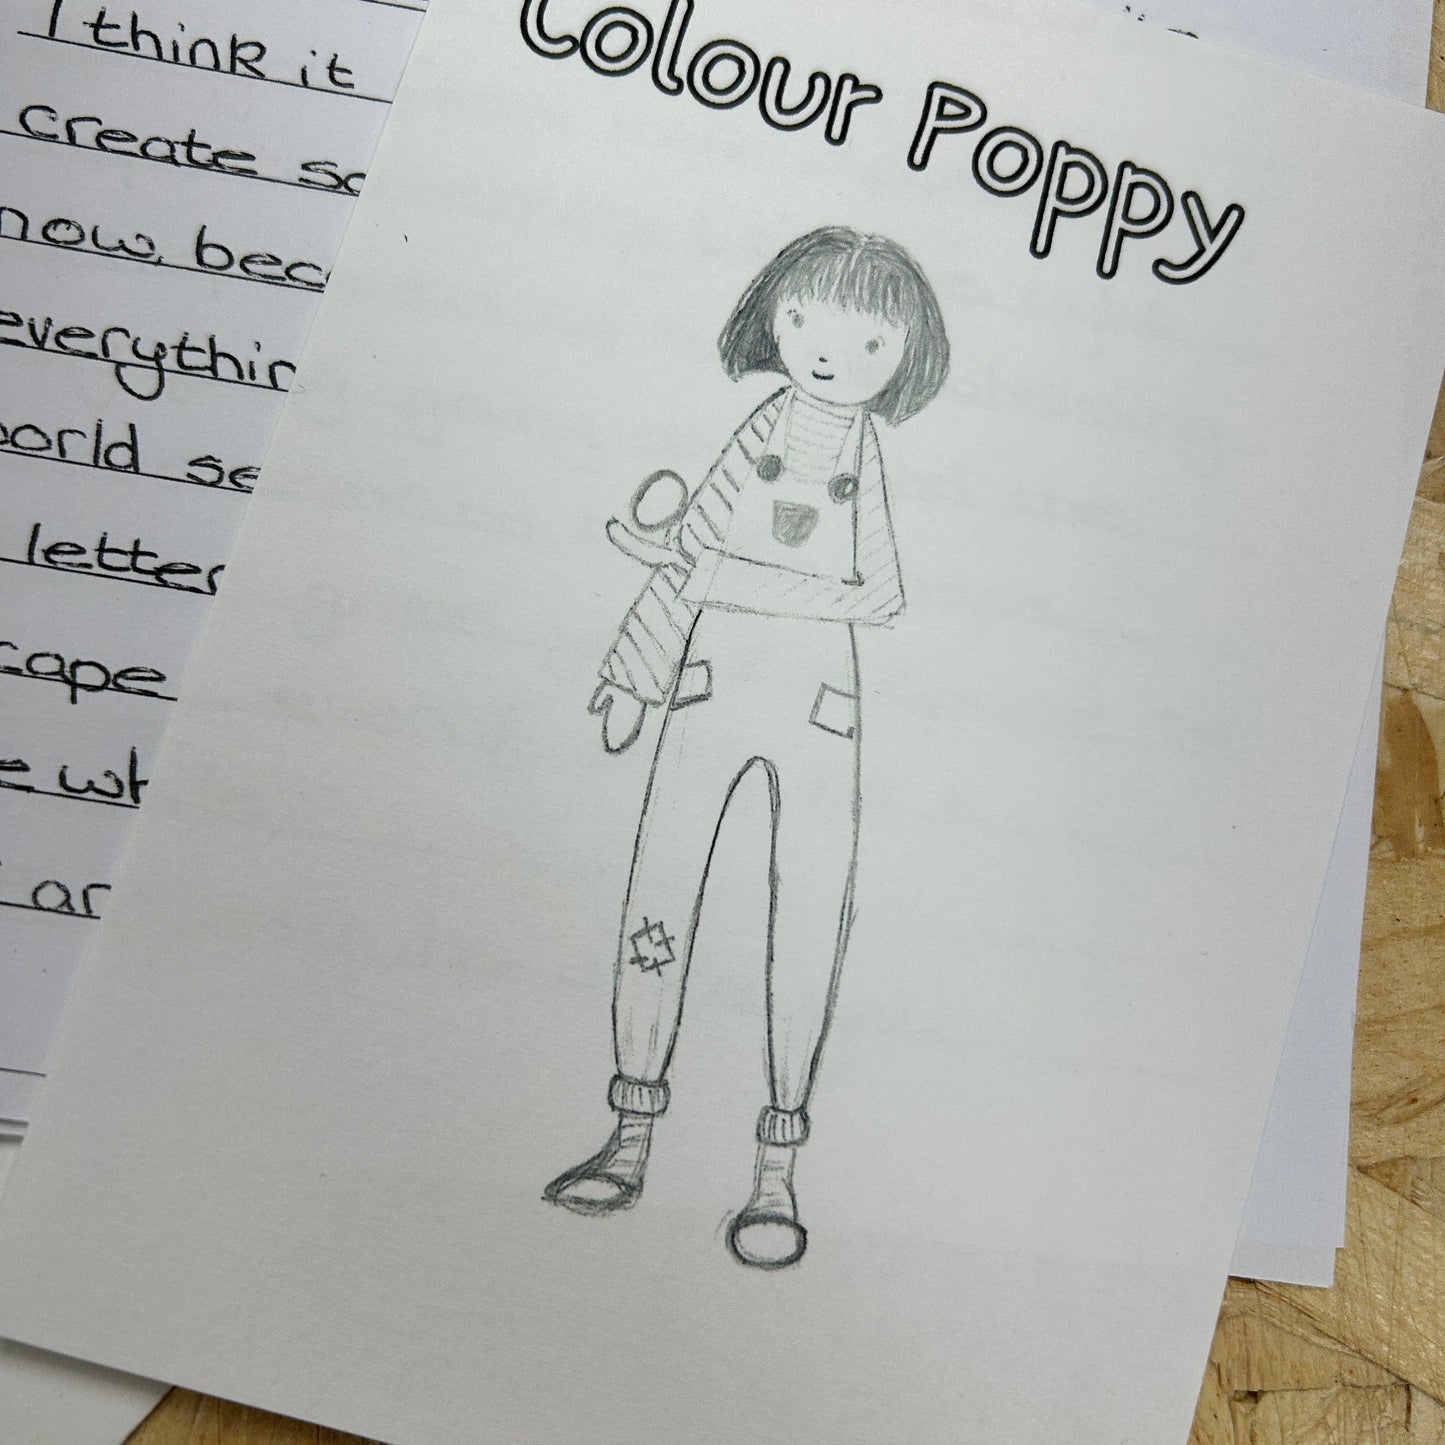 I think it
create
now, 
everythin
se
letter
cape
wh
ar
Colour Poppy